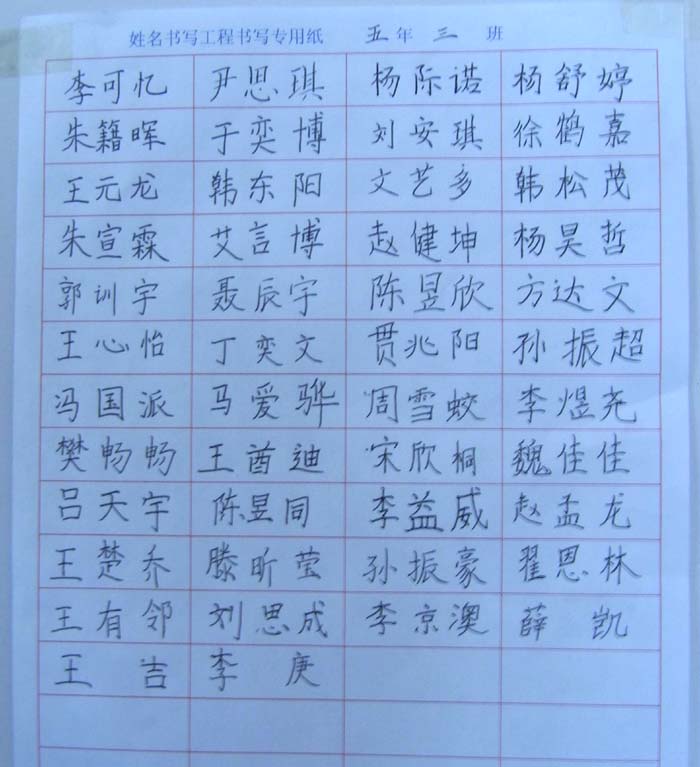 姓名书写工程书写专用纸 五年 三 班
李可忆 尹思琪 杨际诺 杨舒婷
朱籍晖 于奕博 刘安琪 徐鹤嘉
王元龙 韩东阳 文艺多 韩松茂
朱宣霖 艾言博 赵健坤 杨昊哲
郭训宇 聂辰宇 陈昱欣 方达文
王心怡 丁奕文 贯兆阳 孙振超
冯国派 马爱骅 周雪蛟 李煜尧
樊畅畅 王酋迪 宋欣桐 魏佳佳
吕天宇 陈昱同 李益威 赵孟龙
王楚乔 滕昕莹 孙振豪 翟恩林
王有邻 刘思成 李京澳 薛凯
王吉 李庚